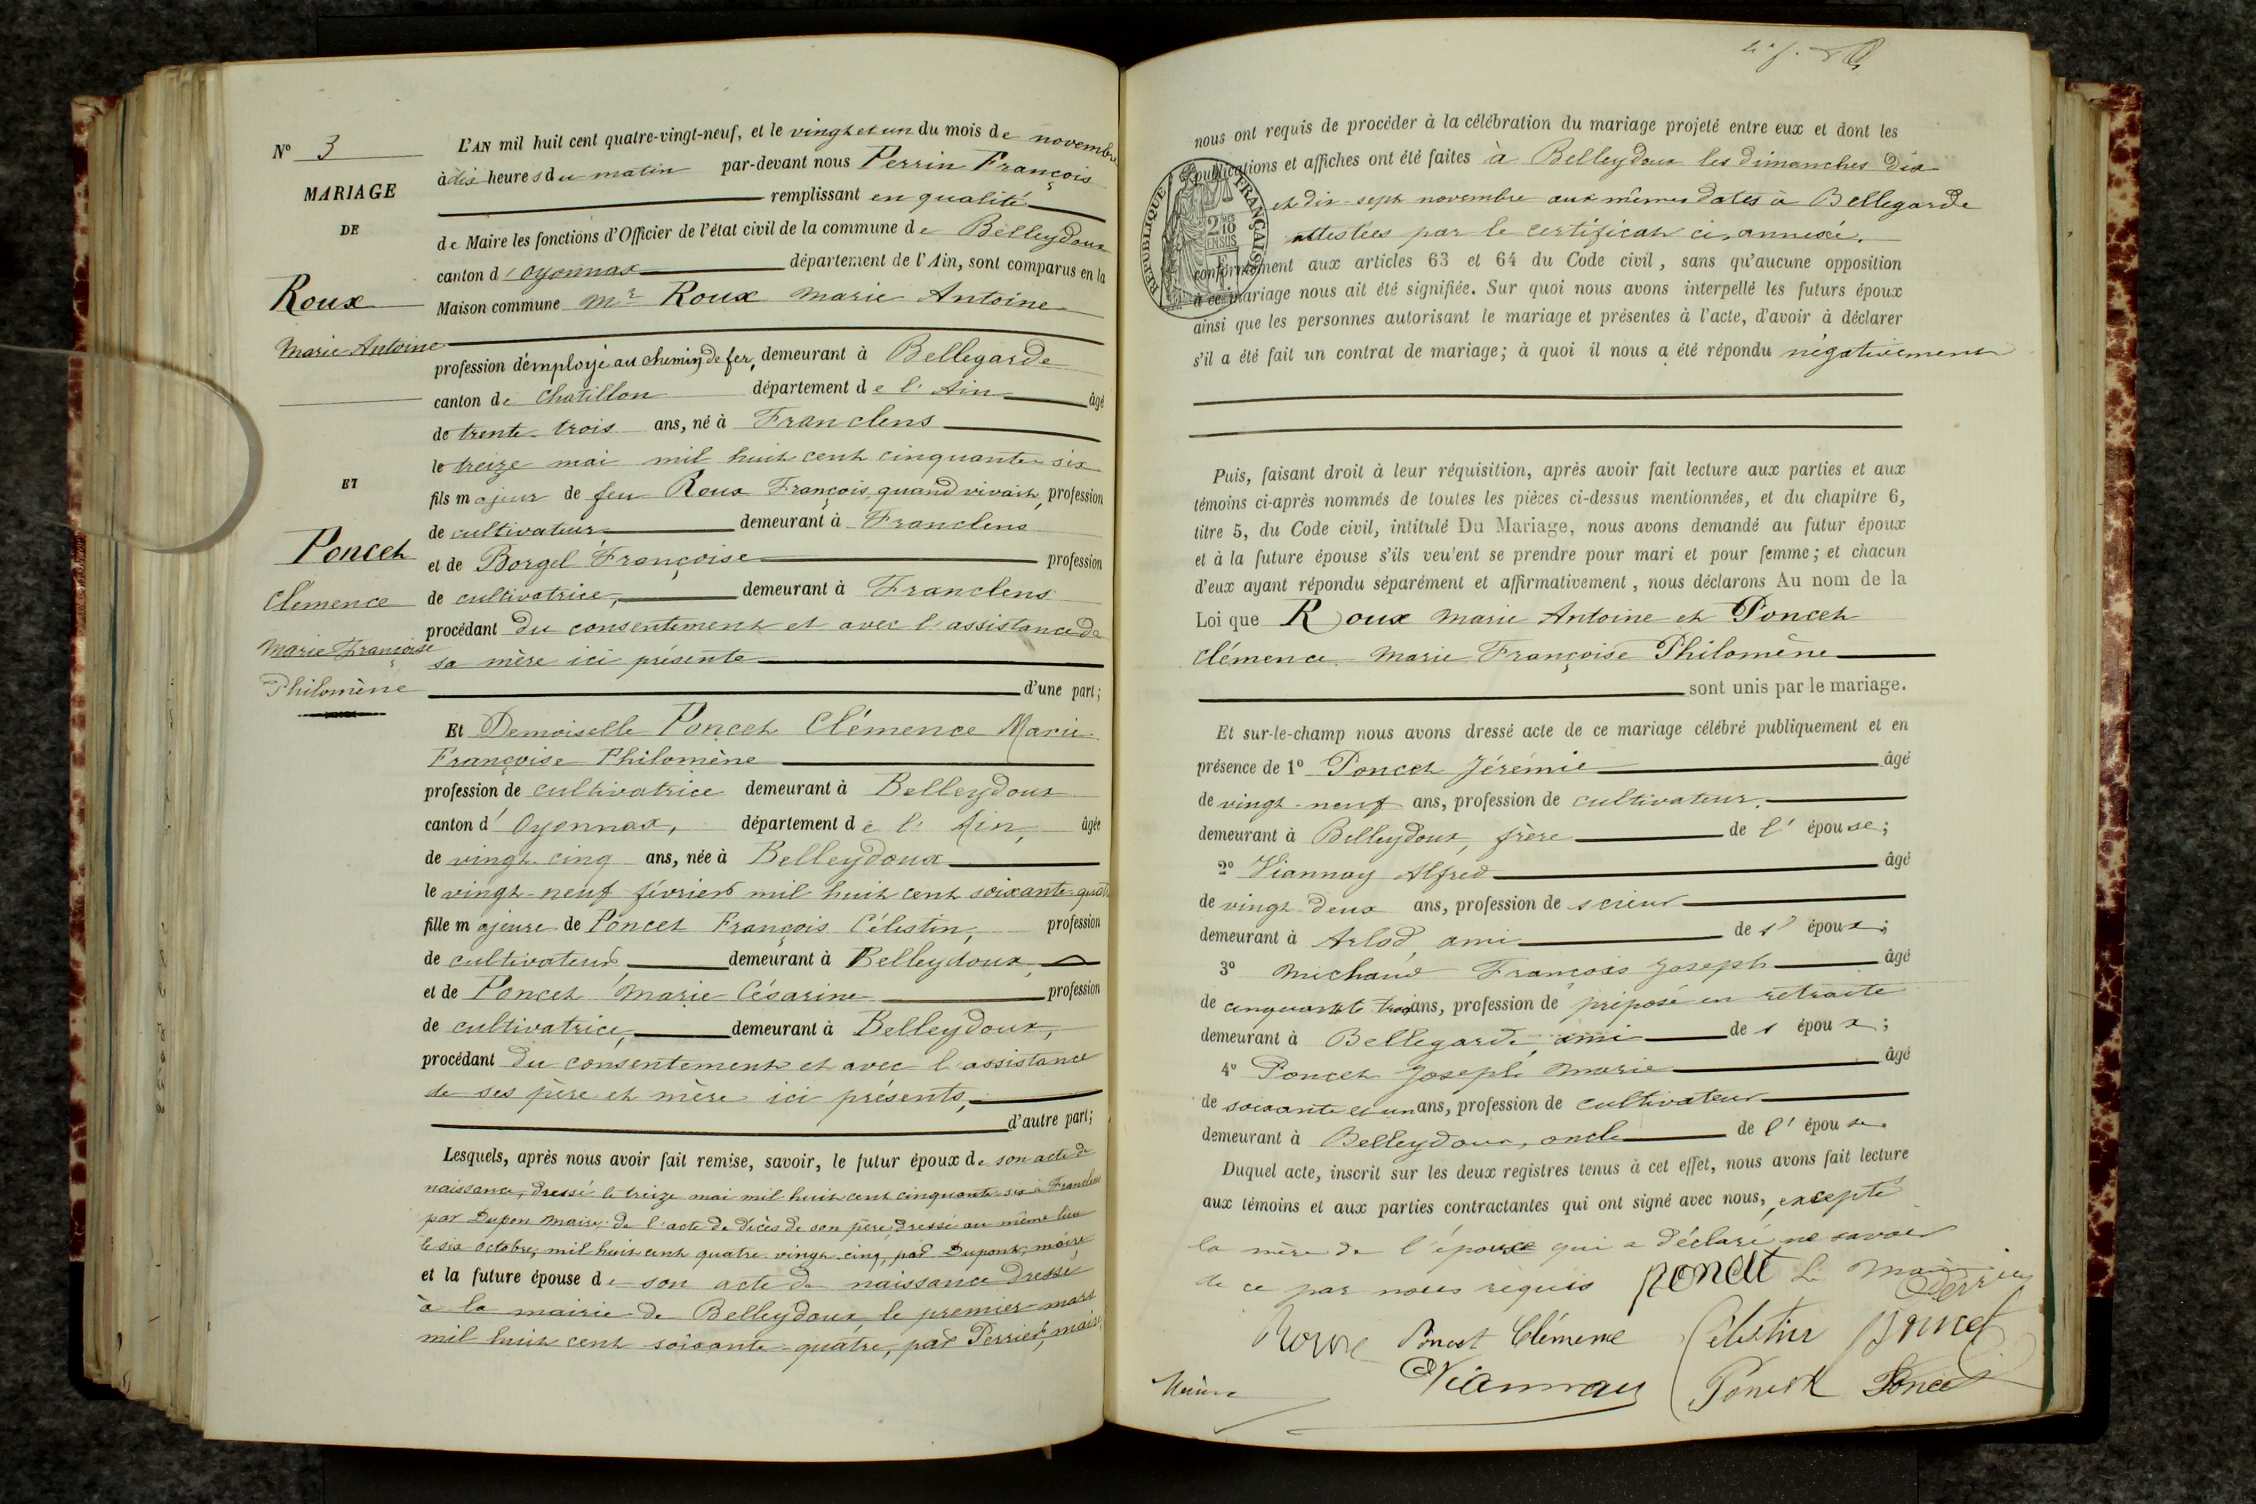 N° 3
MARIAGE
DE
Roux
Marie Antoine
ET
Poncet
Clemence
Marie Françoise
Philomène
L'AN mil huit cent quatre-vingt-neuf, et le vingt et un du mois de novembre
à dix heures du matin par-devant nous Perrin François
remplissant en qualité
de Maire les fonctions d'Officier de l'état civil de la commune de Belleydoux
canton d'Oyonnax département de l'Ain, sont comparus en la
Maison commune Mr Roux Marie Antoine
profession d'employé au chemin de fer, demeurant à Bellegarde
canton de Chatillon département de l'Ain âgé
de trente-trois ans, né à Franclens
le treize mai mil huit cent cinquante-six
fils majeur de feu Roux François quand vivait, profession
de cultivateur, demeurant à Franclens
et de Borgel Françoise profession
de cultivatrice, demeurant à Franclens
procédant du consentement et avec l'assistance de
sa mère ici présente
d'une part;
Et Demoiselle Poncet Clémence Marie
Françoise Philomène
profession de cultivatrice demeurant à Belleydoux
canton d'Oyonnax, département de l'Ain, âgée
de vingt-cinq ans, née à Belleydoux
le vingt-neuf février mil huit cent soixante-quatre
fille majeure de Poncet François Célestin, profession
de cultivateur demeurant à Belleydoux,
et de Poncet Marie Césarine profession
de cultivatrice, demeurant à Belleydoux,
procédant du consentement et avec l'assistance
de ses père et mère ici présents,
d'autre part;
Lesquels, après nous avoir fait remise, savoir, le futur époux de son acte de
naissance, dressé le treize mai mil huit cent cinquante-six à Franclens
par Dupon maire; de l'acte de décès de son père, dressé au même lieu
le six octobre, mil huit cent quatre-vingt-cinq, par Dupont, maire
et la future épouse de son acte de naissance dressé
à la mairie de Belleydoux le premier mars
mil huit cent soixante-quatre, par Perrier, maire,
nous ont requis de procéder à la célébration du mariage projeté entre eux et dont les
publications et affiches ont été faites à Belleydoux les dimanches dix
et dix-sept novembre aux mêmes dates à Bellegarde
attestées par le certificat ci-annexé.
conformément aux articles 63 et 64 du Code civil, sans qu'aucune opposition
à ce mariage nous ait été signifiée. Sur quoi nous avons interpellé les futurs époux
ainsi que les personnes autorisant le mariage et présentes à l'acte, d'avoir à déclarer
s'il a été fait un contrat de mariage; à quoi il nous a été répondu négativement
RÉPUBLIQUE FRANÇAISE
2/10 EN SUS
Puis, faisant droit à leur réquisition, après avoir fait lecture aux parties et aux
témoins ci-après nommés de toutes les pièces ci-dessus mentionnées, et du chapitre 6,
titre 5, du Code civil, intitulé Du Mariage, nous avons demandé au futur époux
et à la future épouse s'ils veu'ent se prendre pour mari et pour femme; et chacun
d'eux ayant répondu séparément et affirmativement, nous déclarons Au nom de la
Loi que Roux Marie Antoine et Poncet
Clémence Marie Françoise Philomène
sont unis par le mariage.
Et sur-le-champ nous avons dressé acte de ce mariage célébré publiquement et en
présence de 1° Poncet Jérémie âgé
de vingt-neuf ans, profession de cultivateur,
demeurant à Belleydoux, frère de l'épouse;
2° Viannay Alfred âgé
de vingt-deux ans, profession de scieur
demeurant à Arlod, ami de l'époux;
3° Michaud François Joseph âgé
de cinquante trois ans, profession de préposé en retraite
demeurant à Bellegarde, ami de l'époux;
4° Poncet Joseph Marie âgé
de soixante et un ans, profession de cultivateur
demeurant à Belleydoux, oncle de l'épouse
Duquel acte, inscrit sur les deux registres tenus à cet effet, nous avons fait lecture
aux témoins et aux parties contractantes qui ont signé avec nous, excepté
la mère de l'époux qui a déclaré ne savoir
de ce par nous requis Poncet Le Maire
Perrin
Roux Poncet Clémence Célestin Poncet
Viannay Poncet Poncet